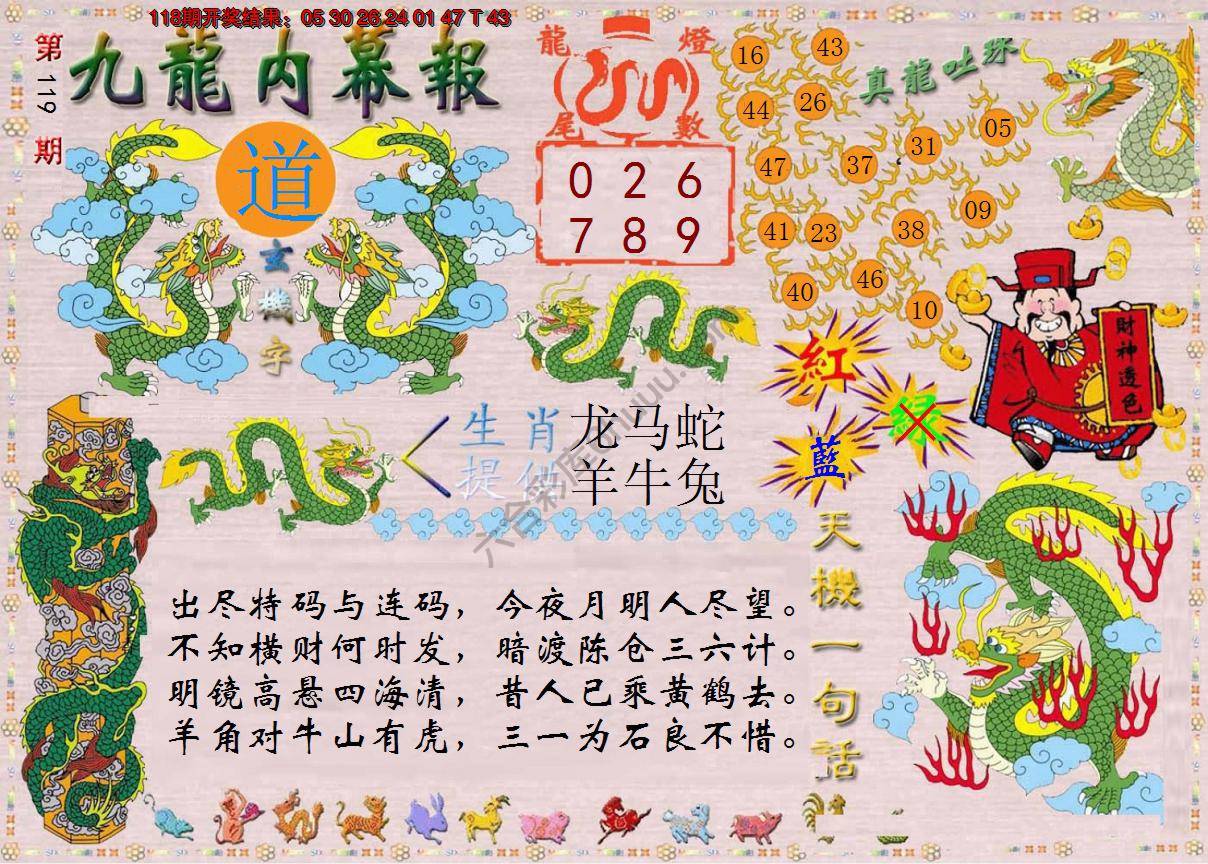 118期开奖结果：05 30 26 24 01 47 T 43
第119期
九龍内幕報
道
玄機字
龍燈
尾數
0 2 6
7 8 9
真龍吐珠
16 43
44 26
47 37 31 05
41 23 38 09
40 46 10
紅
綠
藍
財神透色
生肖 龙马蛇
提供 羊牛兔
六合彩库
天機一句話
出尽特码与连码，今夜月明人尽望。
不知横财何时发，暗渡陈仓三六计。
明镜高悬四海清，昔人已乘黄鹤去。
羊角对牛山有虎，三一为石良不惜。